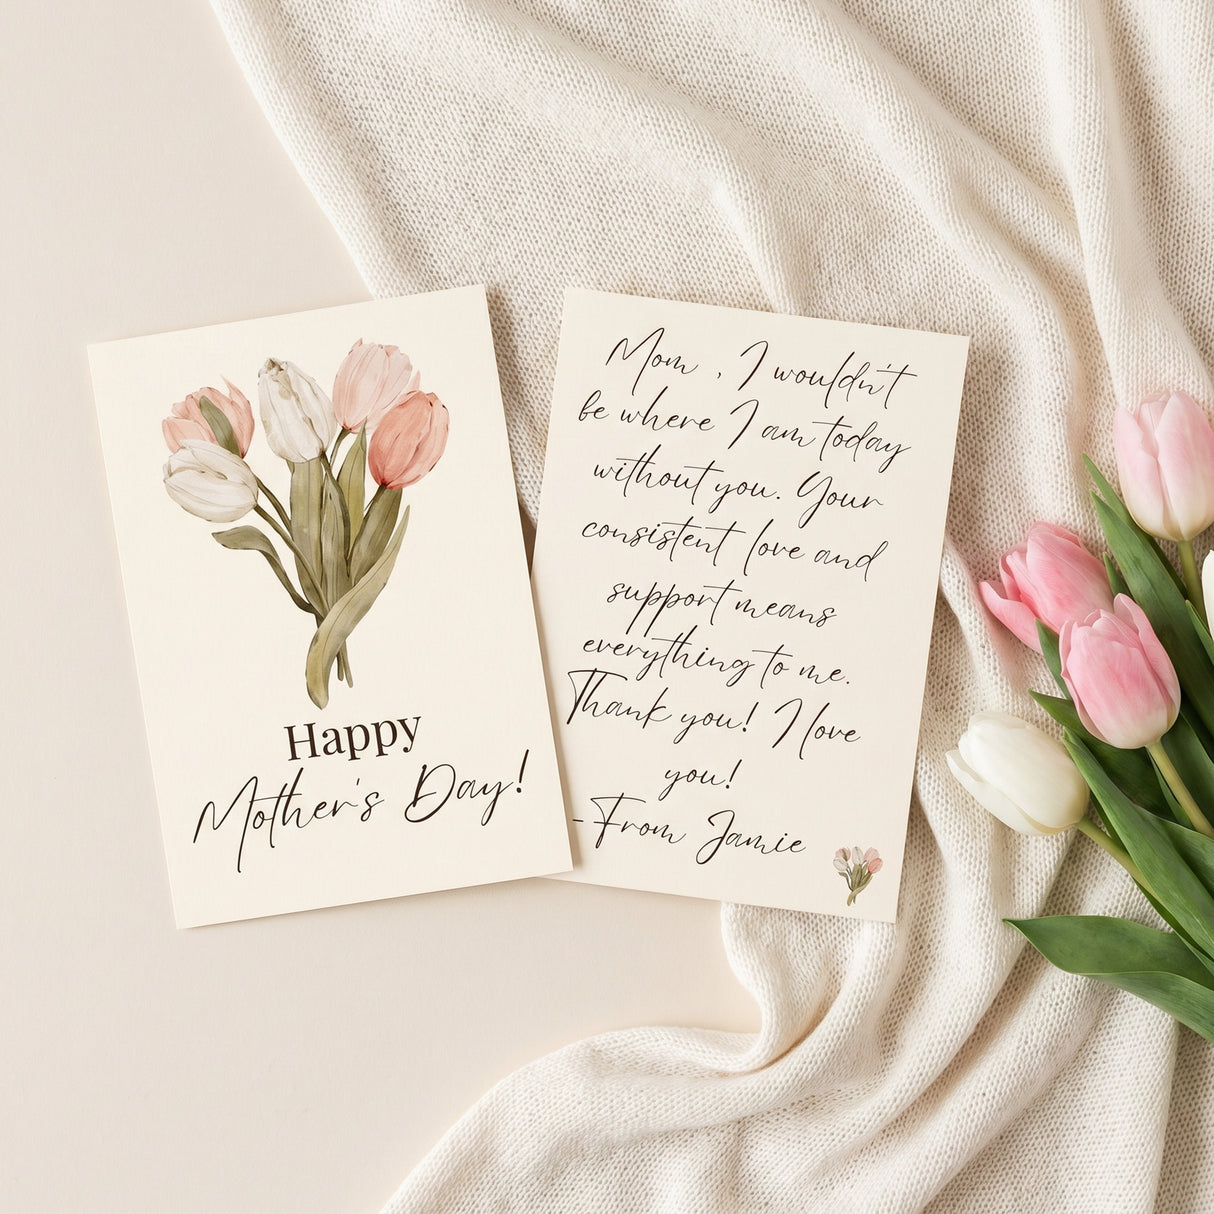 Happy
Mother's Day!
Mom , I wouldn't
be where I am today
without you. Your
consistent love and
support means
everything to me.
Thank you! I love
you!
-From Jamie